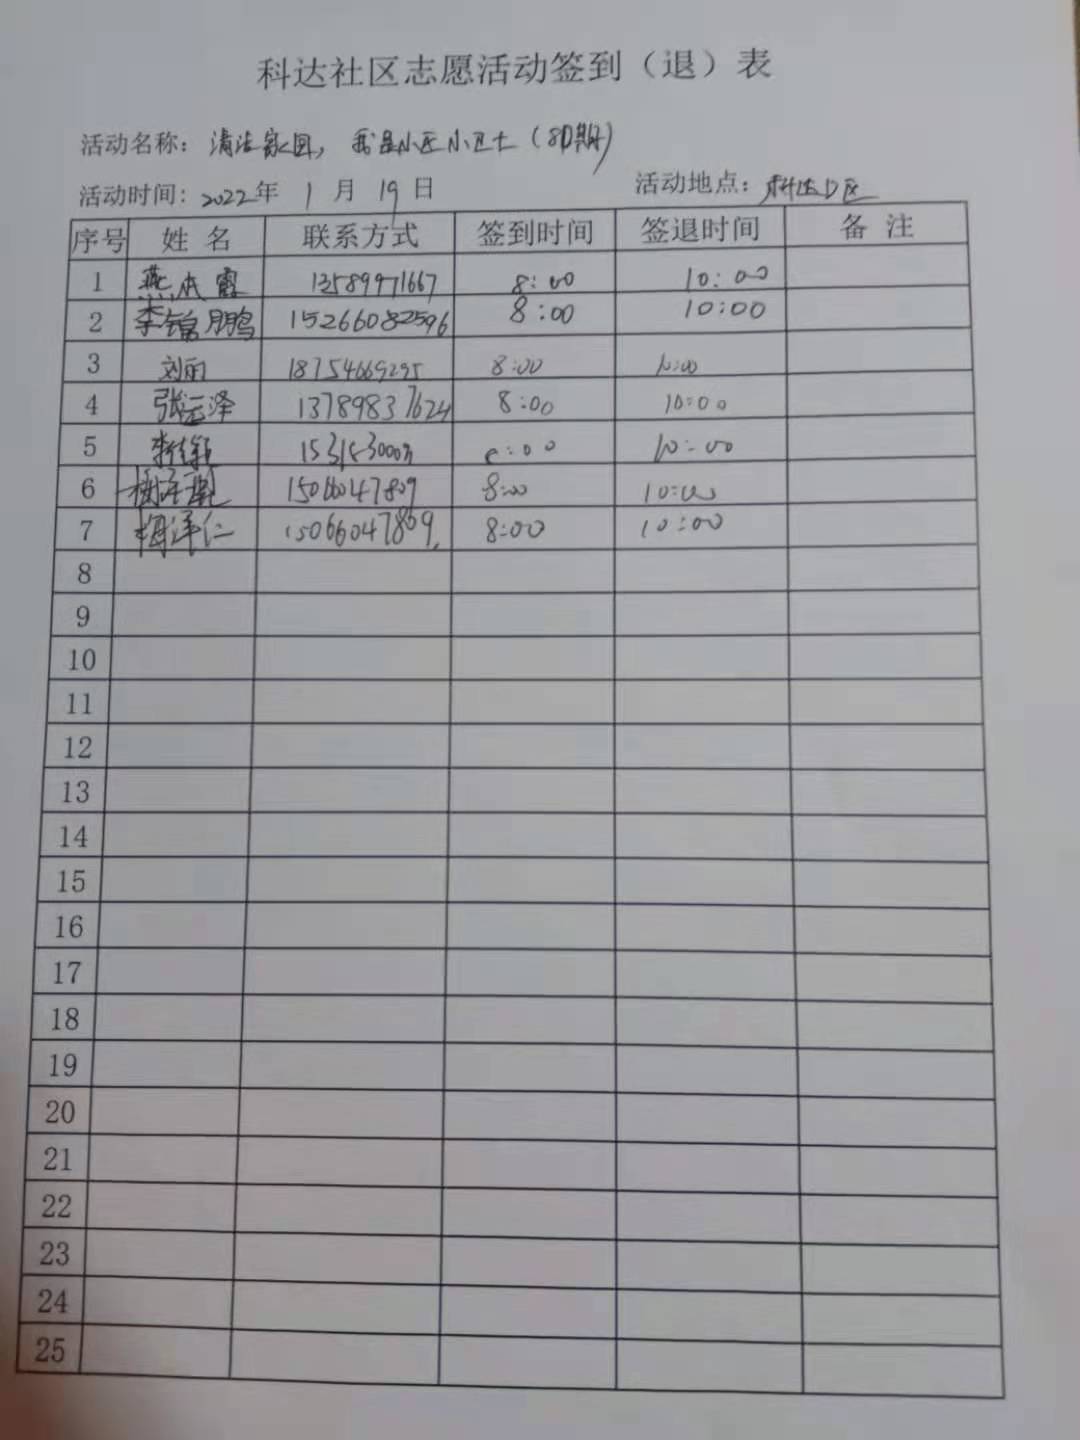 科达社区志愿活动签到（退）表
活动名称：清洁家园，我是小区小卫士（8月期）
活动时间：2022年 1月 19日 活动地点：科达D区
序号 姓名 联系方式 签到时间 签退时间 备注
1 燕 霞 13589971667 8:00 10:00
2 李 鹏 15266082596 8:00 10:00
3 刘雨 18754669295 8:00 10:00
4 张云泽 13789837624 8:00 10:00
5 李 8:00 10:00
6 15066047809 8:00 10:00
7 梅泽仁 15066047809. 8:00 10:00
8
9
10
11
12
13
14
15
16
17
18
19
20
21
22
23
24
25